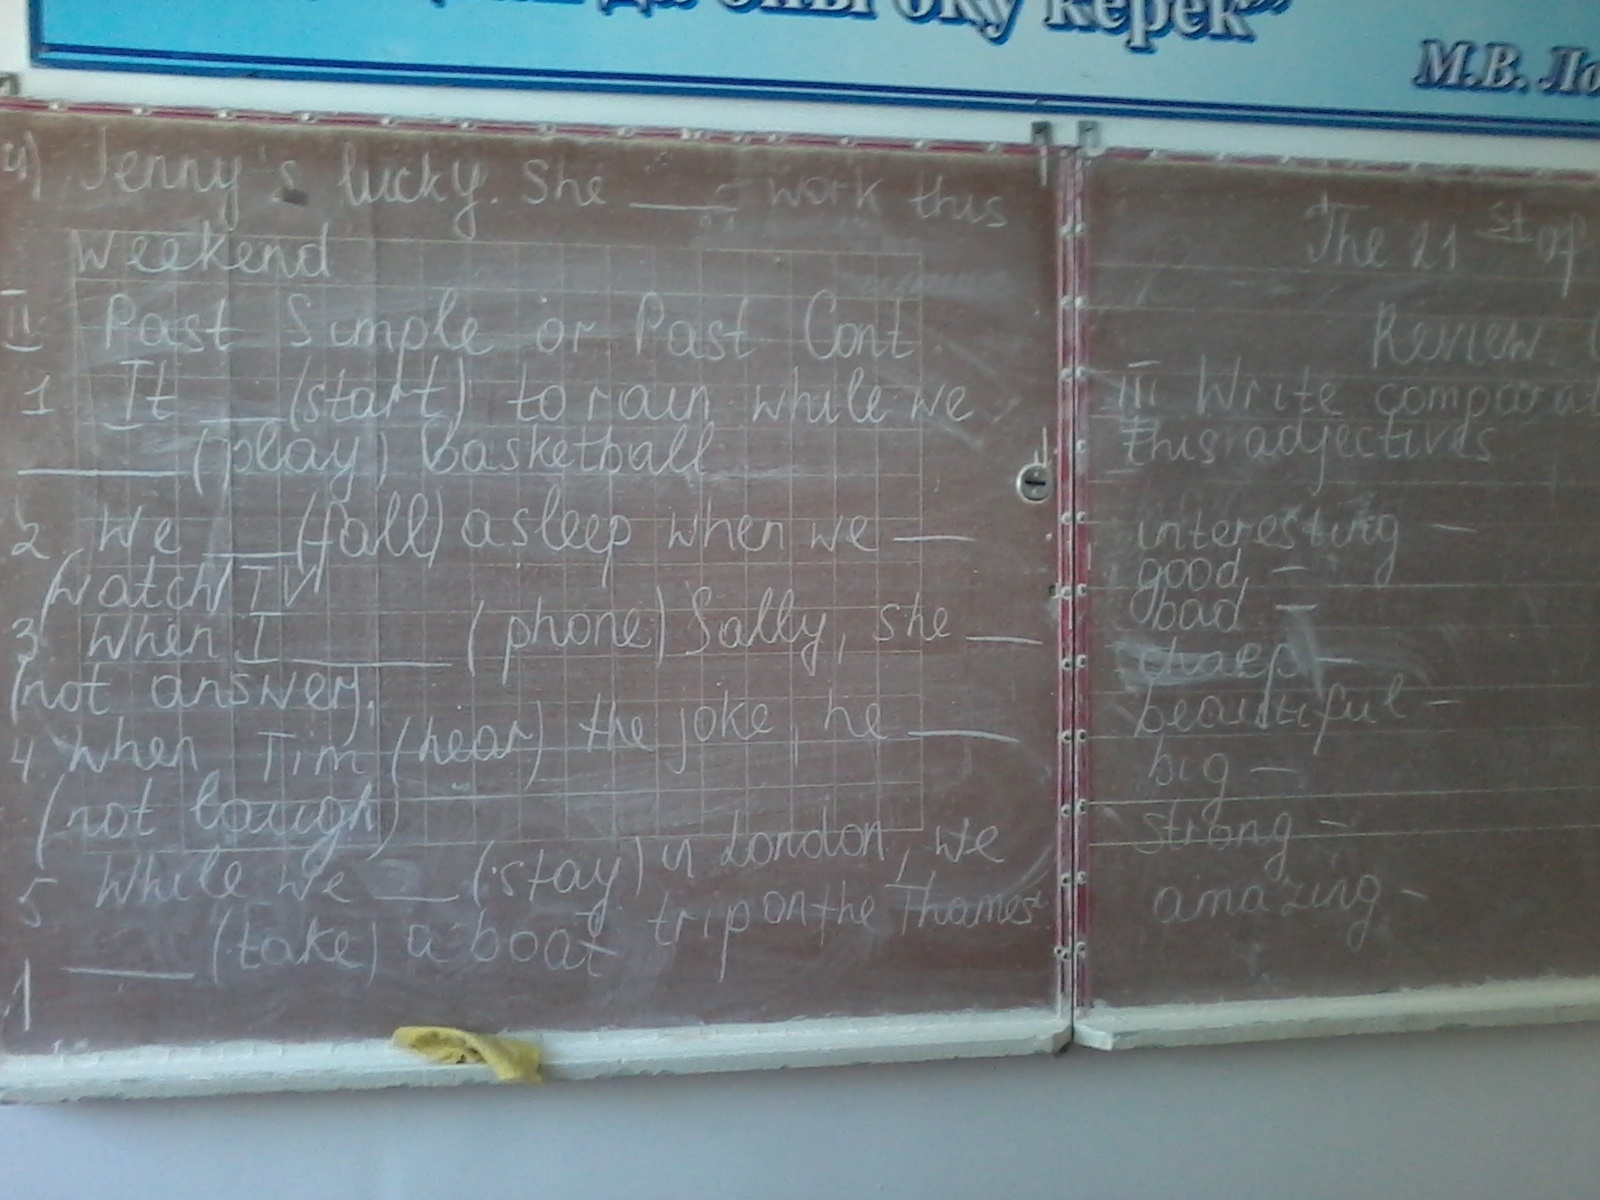 оқу керек”
М.В. Ло
4) Jenny's lucky. She ____ work this
weekend
II Past Simple or Past Cont.
1 It ___ (start) to rain while we
_____ (play) basketball
2 We ___ (fall) asleep when we ___
(watch) TV
3 When I _____ (phone) Sally, she ___
(not answer).
4 When Tim (hear) the joke, he ____
(not laugh)
5 While we ___ (stay) in London, we
_____ (take) a boat trip on the Thames
1
The 21 st of
Review (
III Write comparat
this adjectives
interesting –
good –
bad –
cheap –
beautiful –
big –
strong –
amazing –